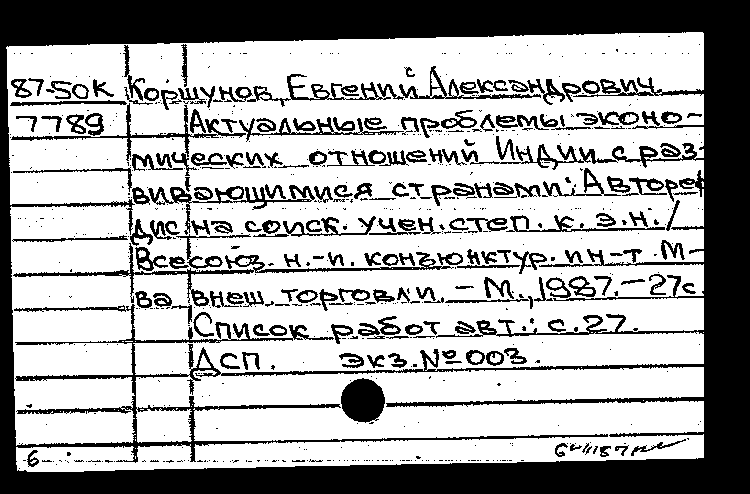 87-50К Коршунов, Евгений Александрович.
7789 Актуальные проблемы эконо-
мических отношений Индии с раз-
вивающимися странами: Автореф
дис на соиск. учен. степ. к. э. н. /
Всесоюз. н.-и. конъюнктур. ин-т М-
ва внеш. торговли. - М., 1987. - 27 с.
Список работ авт.: с. 27.
ДСП. экз. № 003.
6